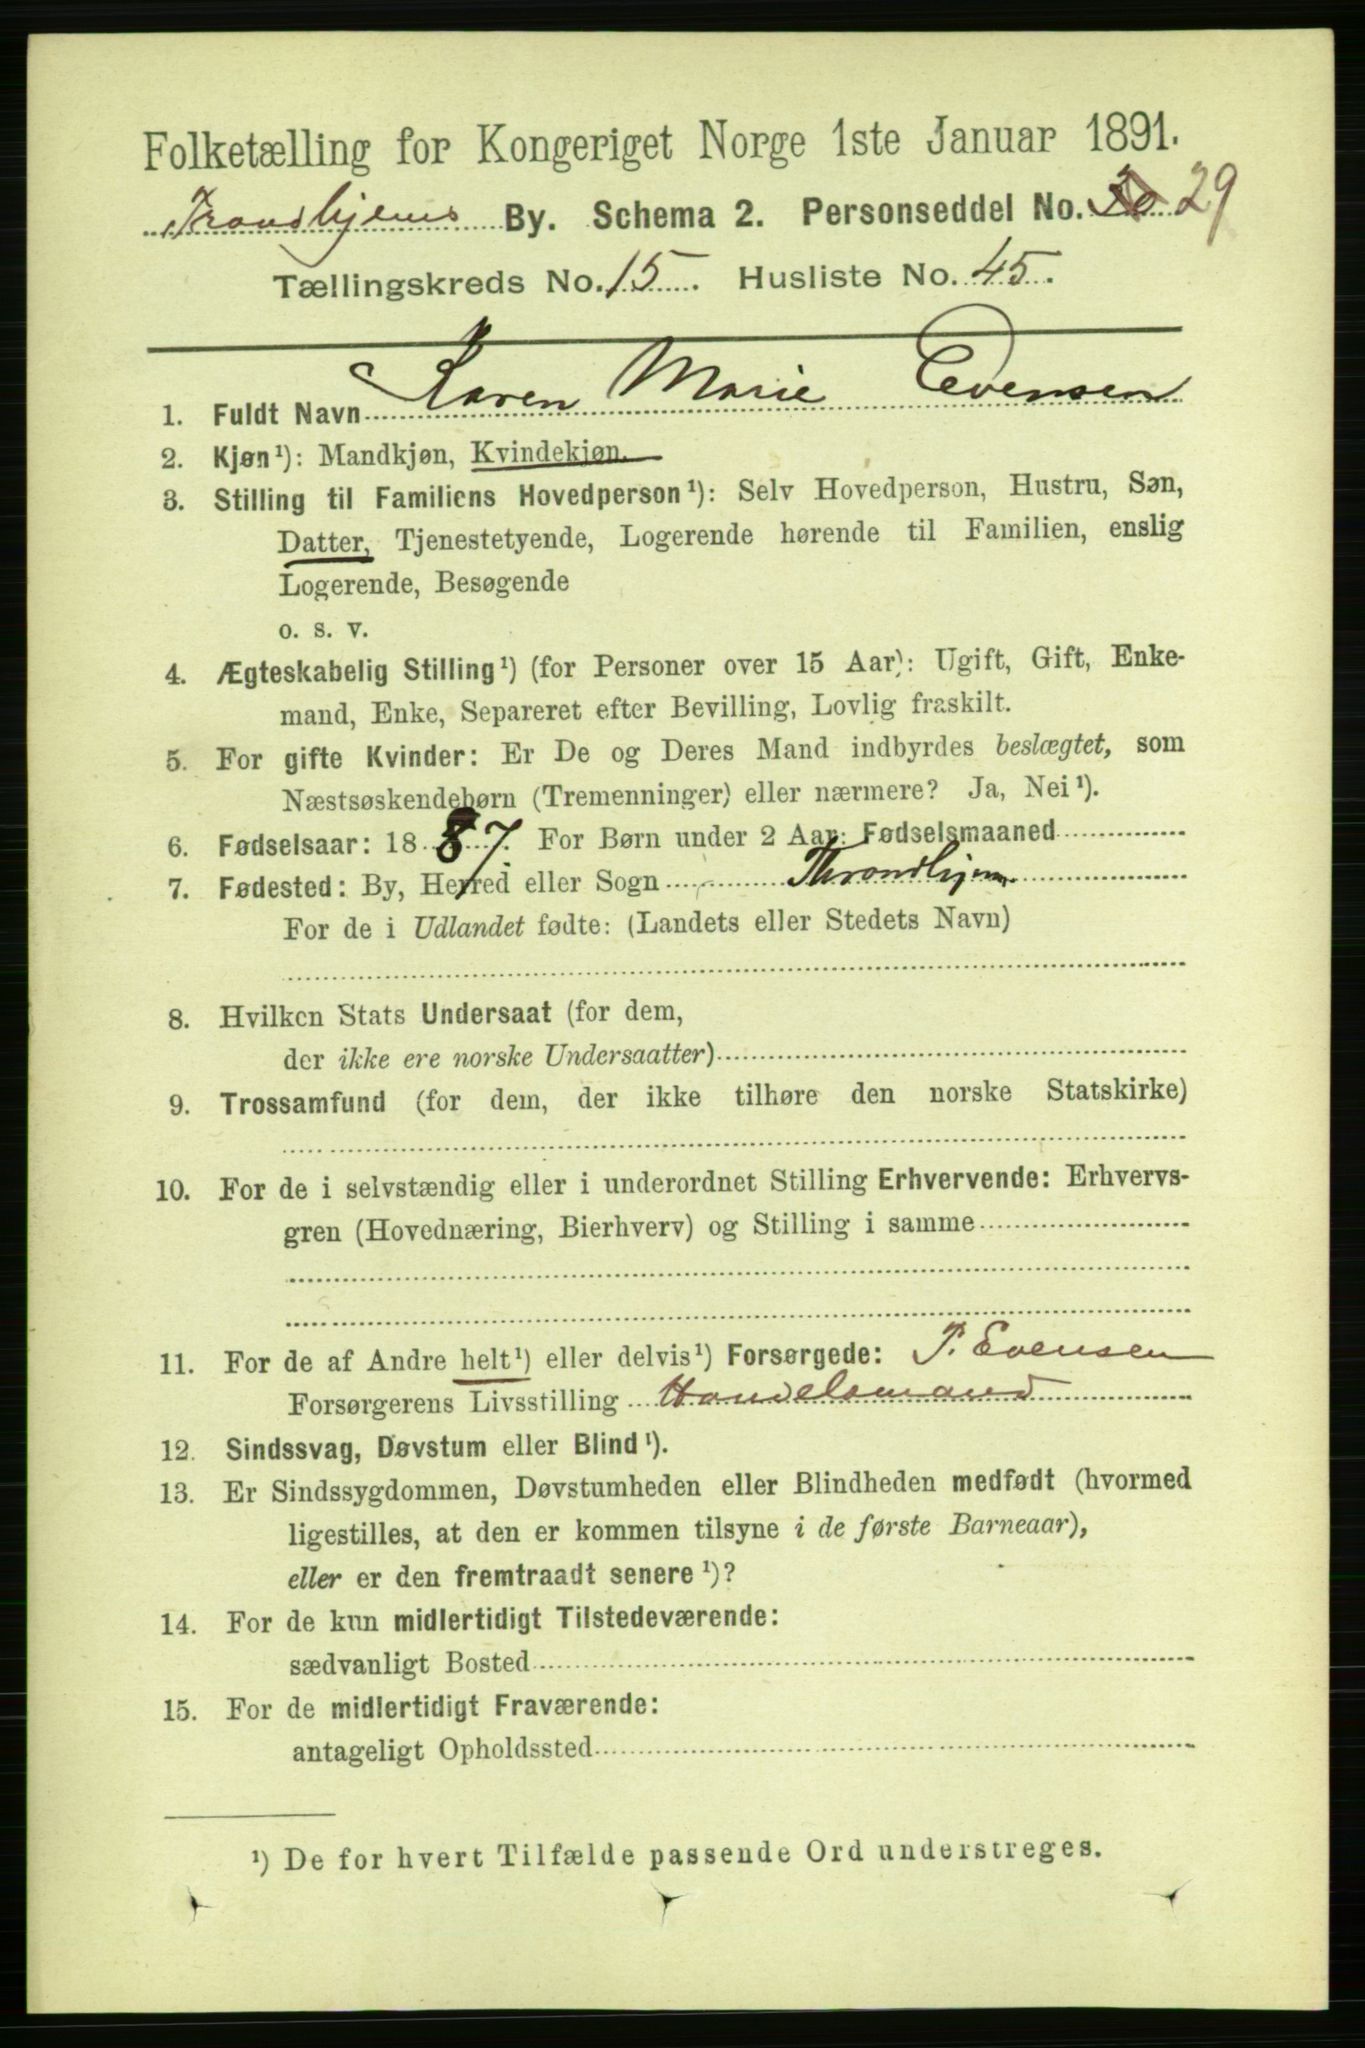 Folketælling for Kongeriget Norge 1ste Januar 1891.
Trondhjems By. Schema 2. Personseddel No. 30 29
Tællingskreds No. 15. Husliste No. 45.
1. Fuldt Navn Karen Marie Evensen
2. Kjøn¹): Mandkjøn, Kvindekjøn.
3. Stilling til Familiens Hovedperson¹): Selv Hovedperson, Hustru, Søn,
Datter, Tjenestetyende, Logerende hørende til Familien, enslig
Logerende, Besøgende
o. s. v.
4. Ægteskabelig Stilling¹) (for Personer over 15 Aar): Ugift, Gift, Enke-
mand, Enke, Separeret efter Bevilling, Lovlig fraskilt.
5. For gifte Kvinder: Er De og Deres Mand indbyrdes beslægtet, som
Næstsøskendebørn (Tremenninger) eller nærmere? Ja, Nei¹).
6. Fødselsaar: 1887. For Børn under 2 Aar: Fødselsmaaned
7. Fødested: By, Herred eller Sogn Throndhjem
For de i Udlandet fødte: (Landets eller Stedets Navn)
8. Hvilken Stats Undersaat (for dem,
der ikke ere norske Undersaatter)
9. Trossamfund (for dem, der ikke tilhøre den norske Statskirke)
10. For de i selvstændig eller i underordnet Stilling Erhvervende: Erhvervs-
gren (Hovednæring, Bierhverv) og Stilling i samme
11. For de af Andre helt¹) eller delvis¹) Forsørgede: P. Evensen
Forsørgerens Livsstilling Handelsmand
12. Sindssvag, Døvstum eller Blind¹).
13. Er Sindssygdommen, Døvstumheden eller Blindheden medfødt (hvormed
ligestilles, at den er kommen tilsyne i de første Barneaar),
eller er den fremtraadt senere¹)?
14. For de kun midlertidigt Tilstedeværende:
sædvanligt Bosted
15. For de midlertidigt Fraværende:
antageligt Opholdssted
¹) De for hvert Tilfælde passende Ord understreges.